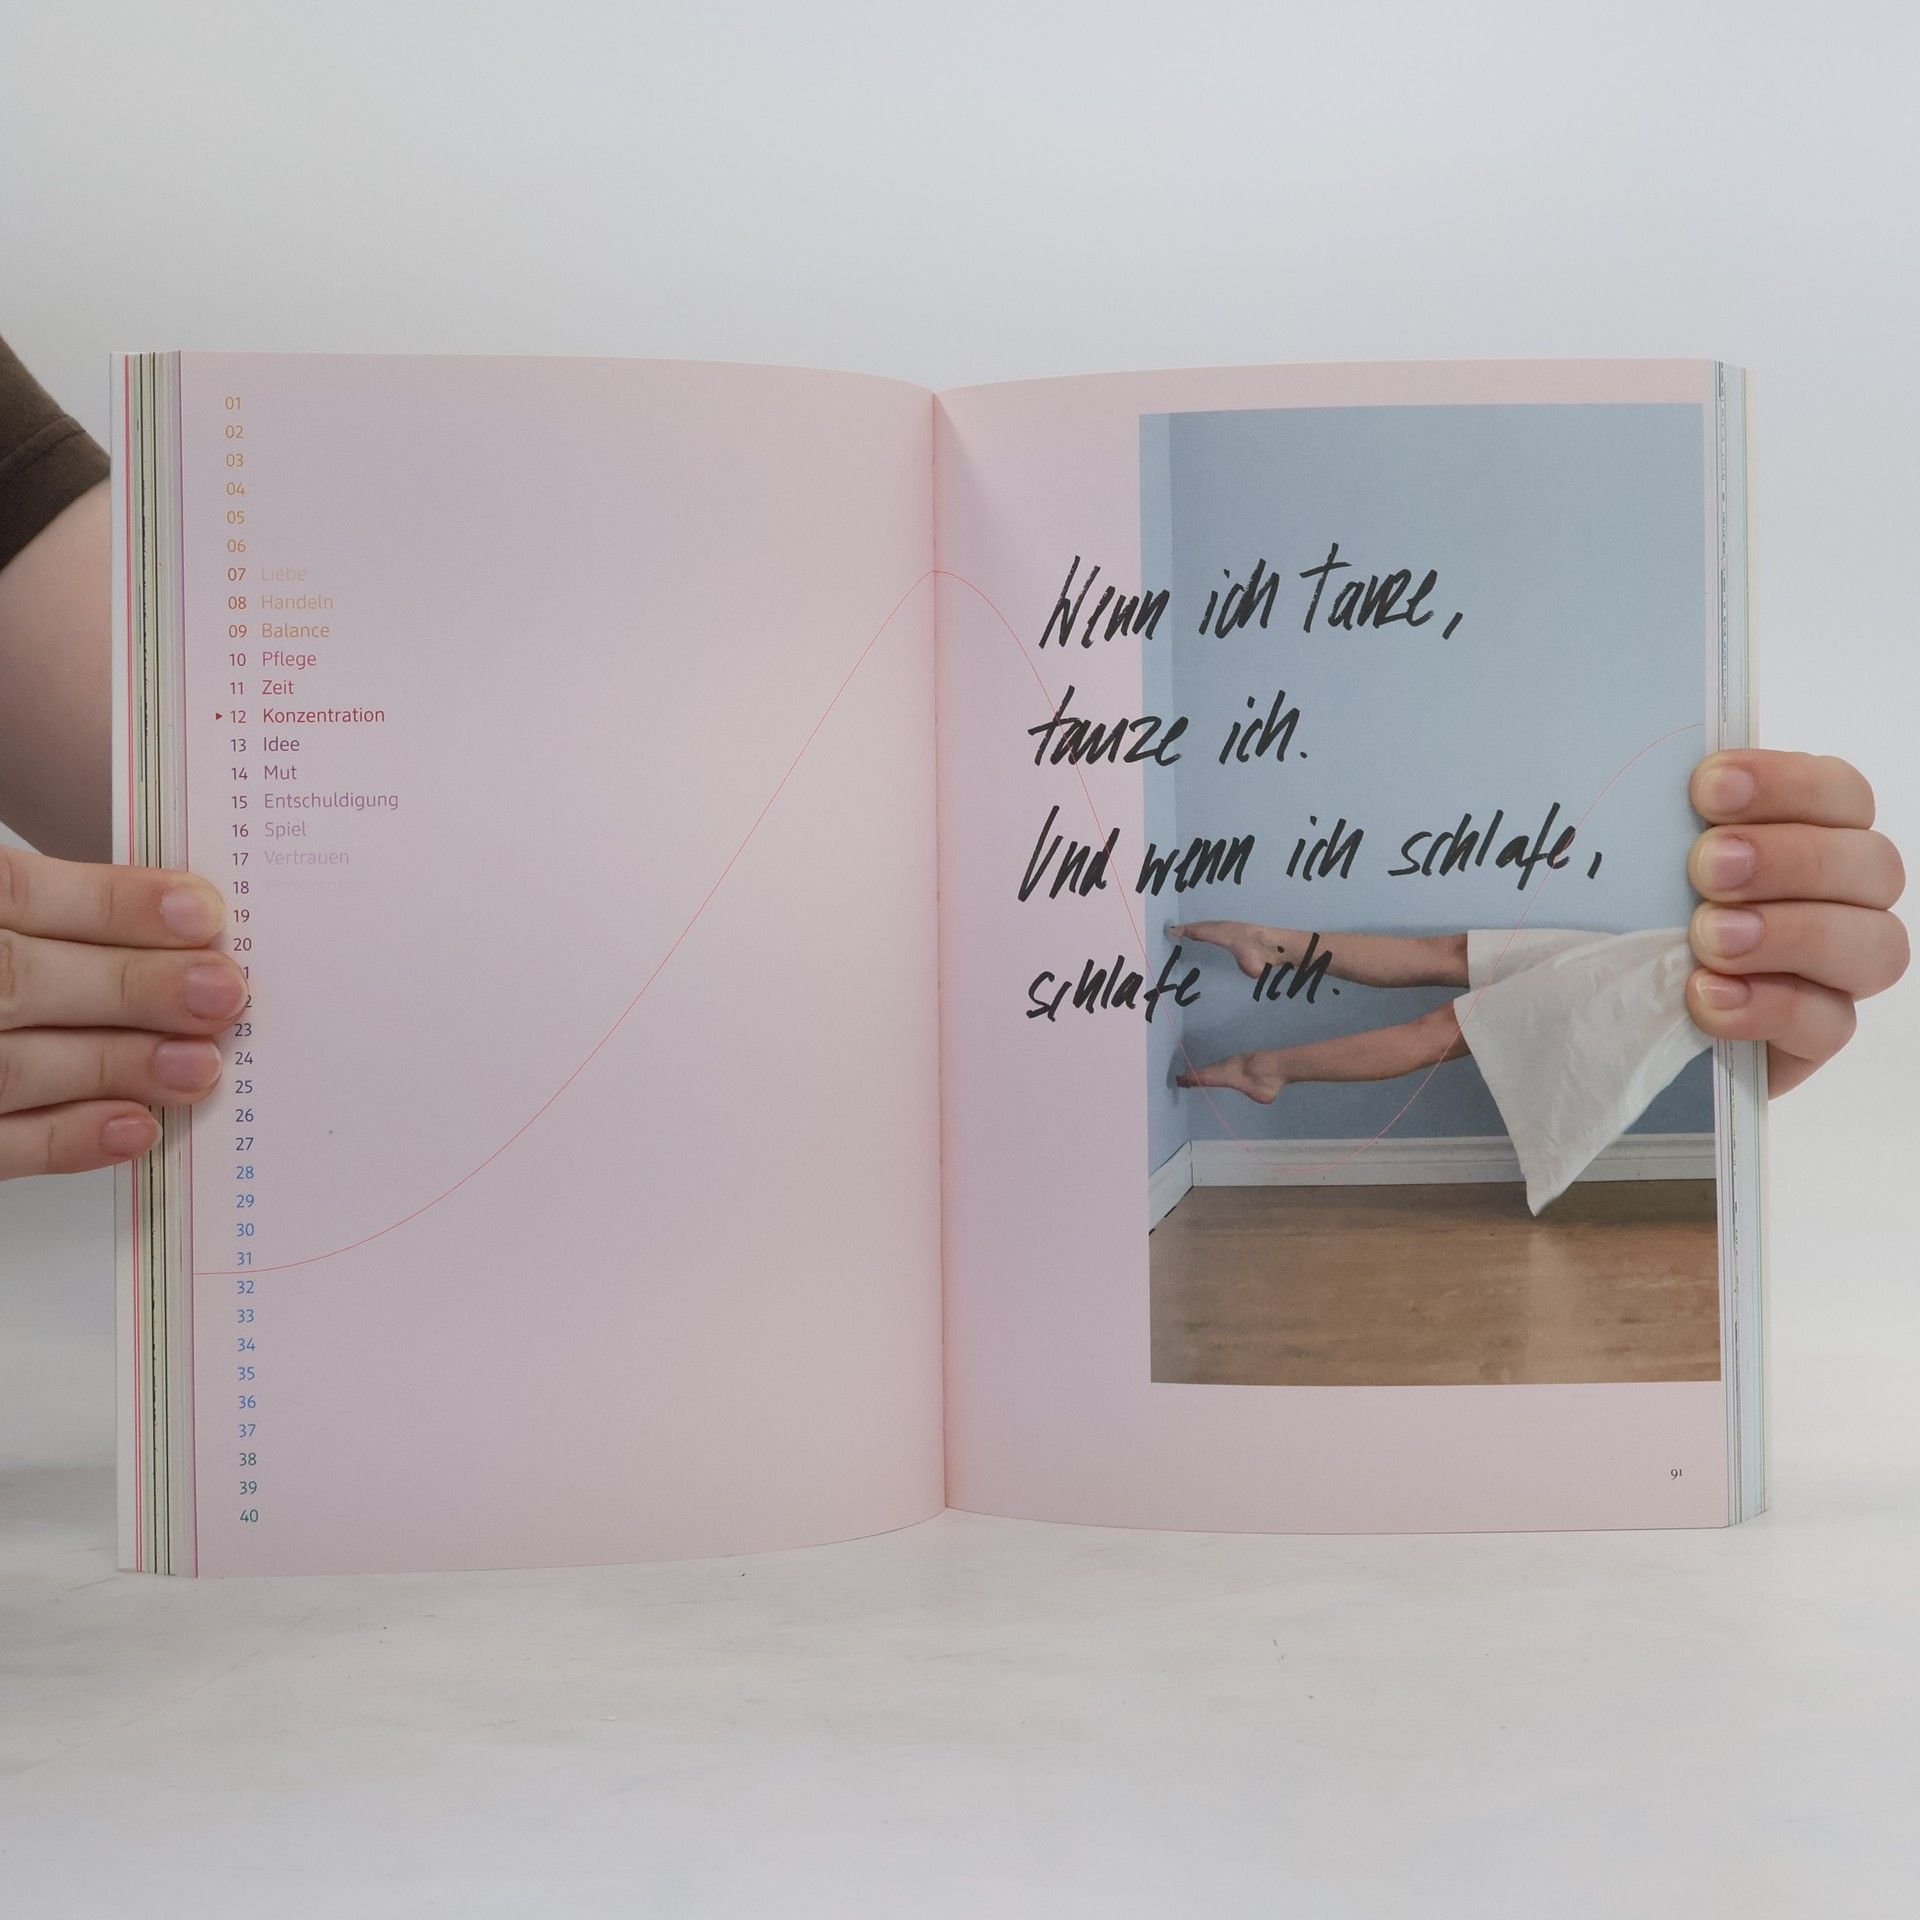 01
02
03
04
05
06
07 Liebe
08 Handeln
09 Balance
10 Pflege
11 Zeit
▸ 12 Konzentration
13 Idee
14 Mut
15 Entschuldigung
16 Spiel
17 Vertrauen
18 Kooperation
19
20
1
2
23
24
25
26
27
28
29
30
31
32
33
34
35
36
37
38
39
40
Wenn ich tanze,
tanze ich.
Und wenn ich schlafe,
schlafe ich.
91